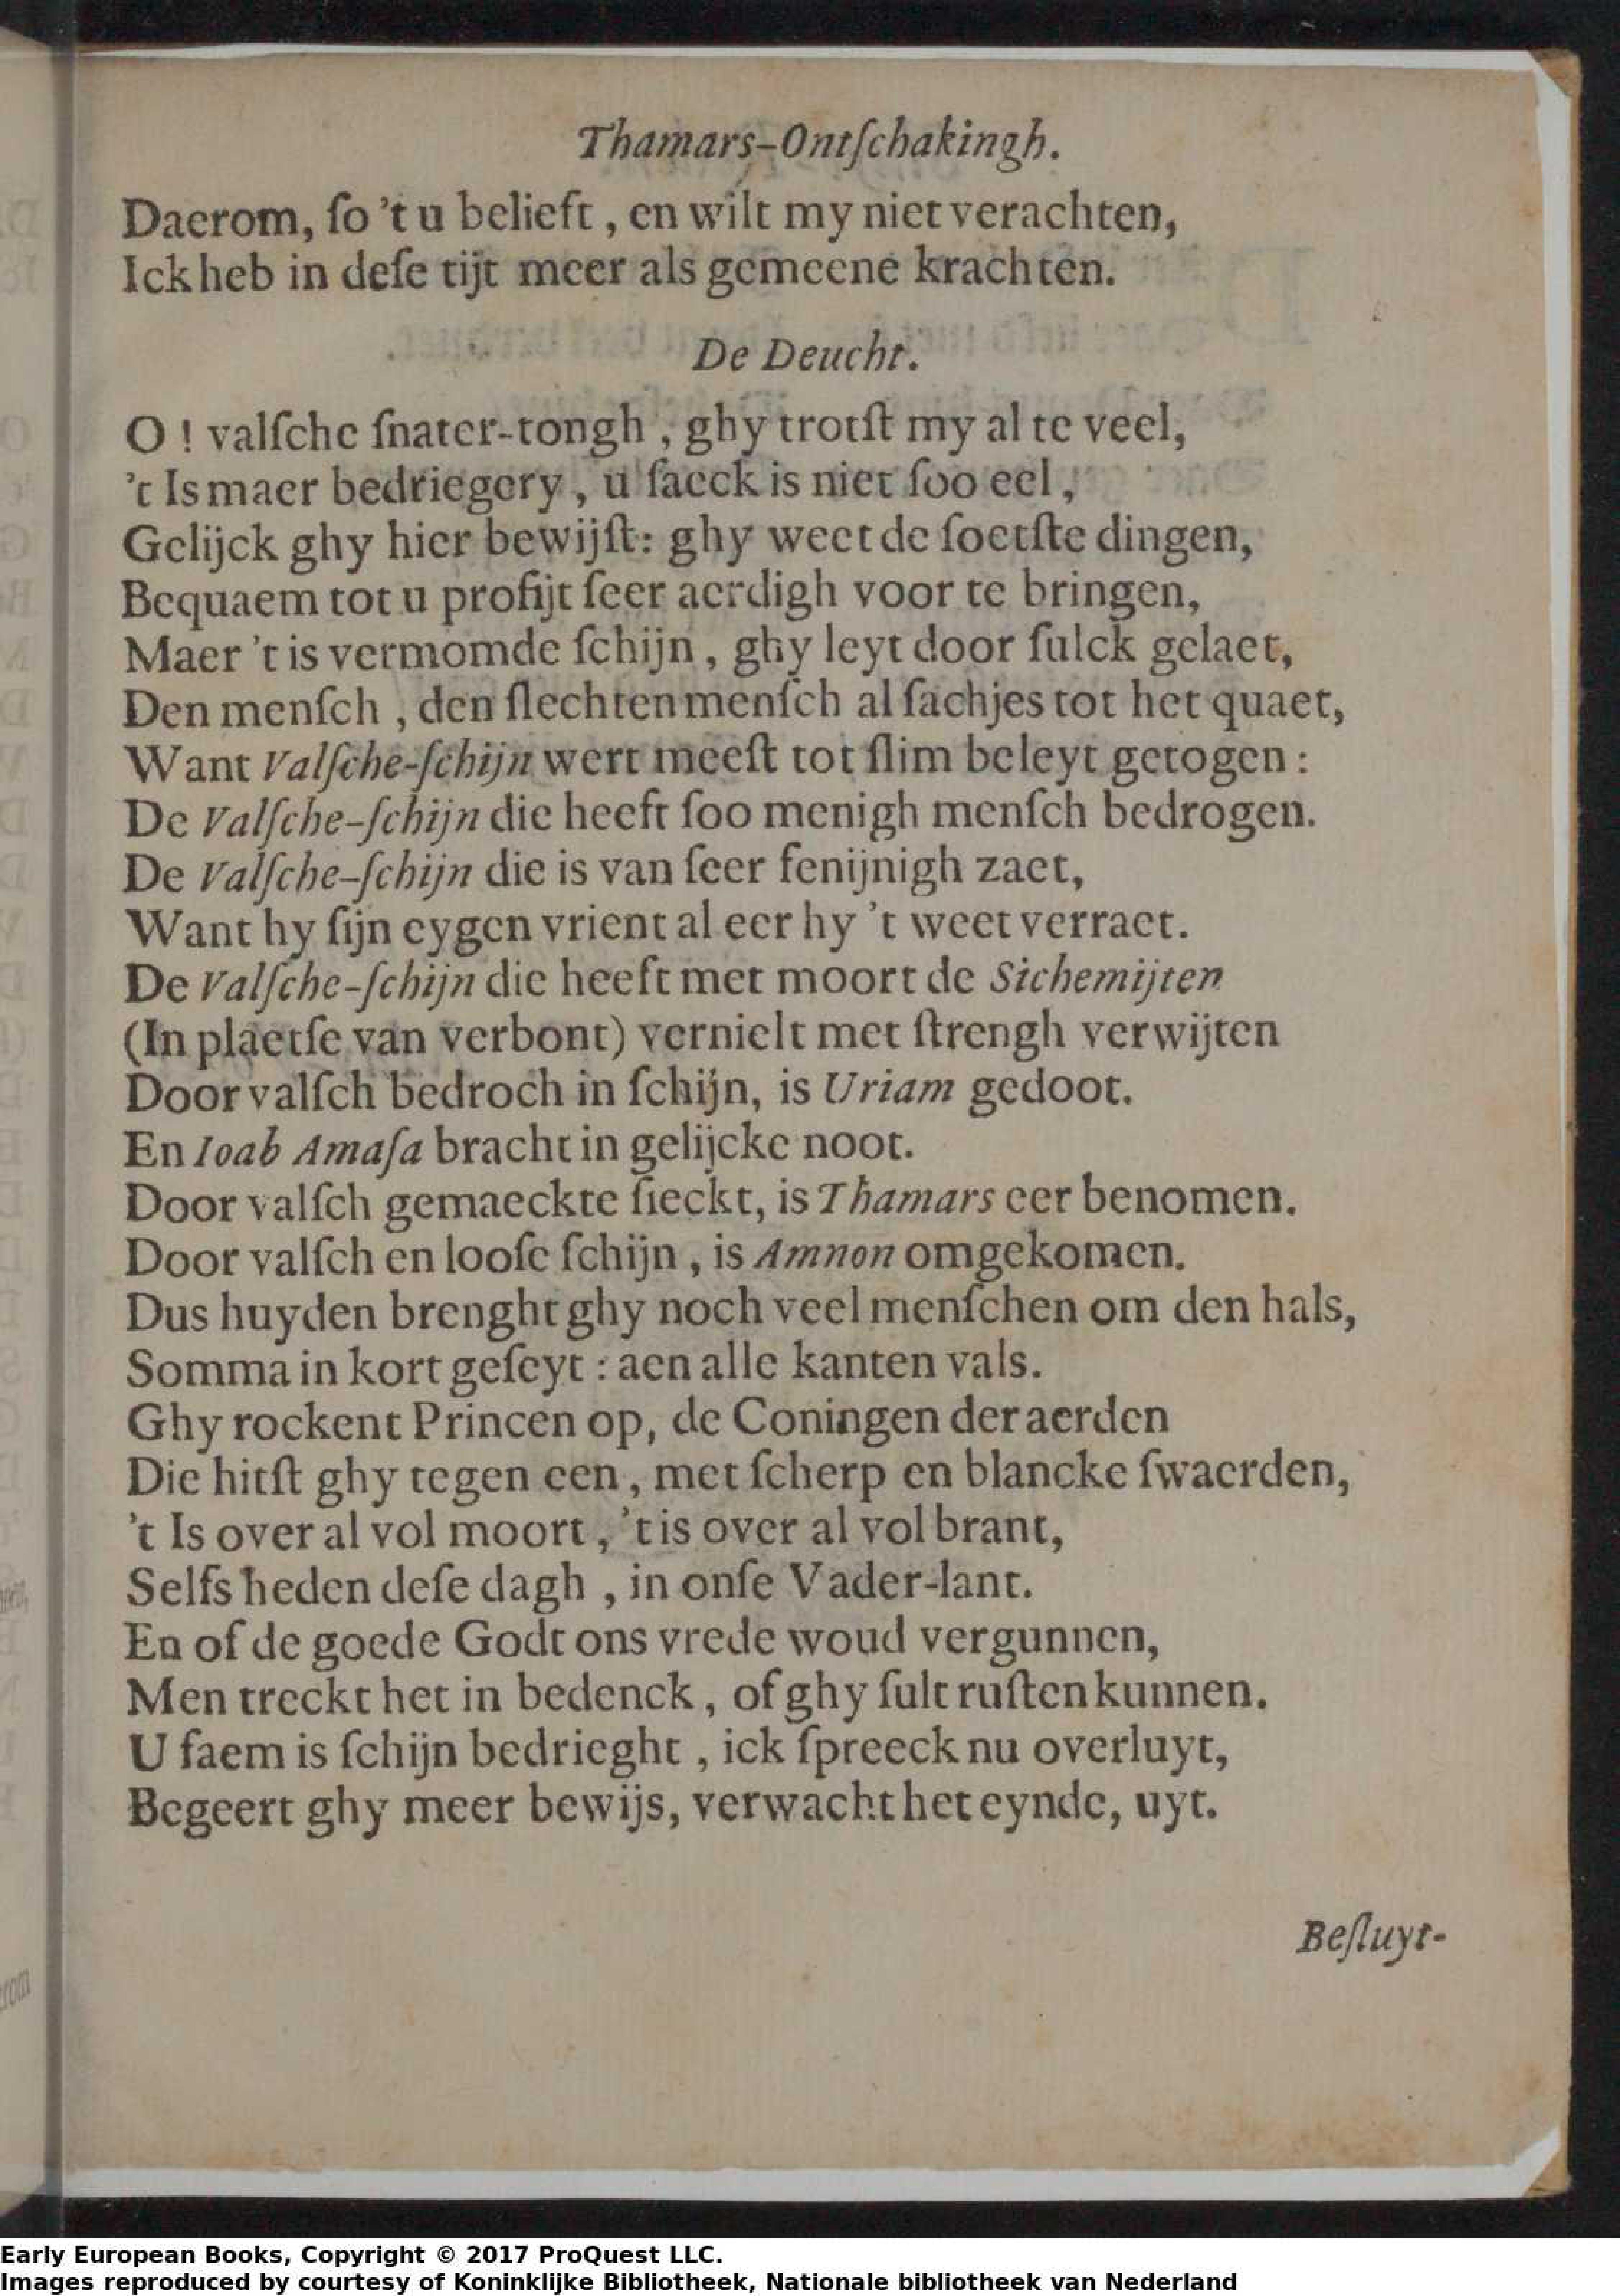 Thamars-Ontſchakingh.
Daerom, ſo 't u belieft, en wilt my niet verachten,
Ick heb in deſe tijt meer als gemeene krachten.
De Deucht.
O! valſche ſnater-tongh, ghy trotſt my al te veel,
't Is maer bedriegery, u ſaeck is niet ſoo eel,
Gelijck ghy hier bewijſt: ghy weet de ſoetſte dingen,
Bequaem tot u profijt ſeer aerdigh voor te bringen,
Maer 't is vermomde ſchijn, ghy leyt door ſulck gelaet,
Den menſch, den ſlechten menſch al ſachjes tot het quaet,
Want Valſche-ſchijn wert meeſt tot ſlim beleyt getogen:
De Valſche-ſchijn die heeft ſoo menigh menſch bedrogen.
De Valſche-ſchijn die is van ſeer fenijnigh zaet,
Want hy ſijn eygen vrient al eer hy 't weet verraet.
De Valſche-ſchijn die heeft met moort de Sichemijten
(In plaetſe van verbont) vernielt met ſtrengh verwijten
Door valſch bedroch in ſchijn, is Uriam gedoot.
En Ioab Amaſa bracht in gelijcke noot.
Door valſch gemaeckte ſieckt, is Thamars eer benomen.
Door valſch en looſe ſchijn, is Amnon omgekomen.
Dus huyden brenght ghy noch veel menſchen om den hals,
Somma in kort geſeyt: aen alle kanten vals.
Ghy rockent Princen op, de Coningen der aerden
Die hitſt ghy tegen een, met ſcherp en blancke ſwaerden,
't Is over al vol moort, 't is over al vol brant,
Selfs heden deſe dagh, in onſe Vader-lant.
En of de goede Godt ons vrede woud vergunnen,
Men treckt het in bedenck, of ghy ſult ruſten kunnen.
U faem is ſchijn bedrieght, ick ſpreeck nu overluyt,
Begeert ghy meer bewijs, verwacht het eynde, uyt.
Beſluyt-
Early European Books, Copyright © 2017 ProQuest LLC.
Images reproduced by courtesy of Koninklijke Bibliotheek, Nationale bibliotheek van Nederland